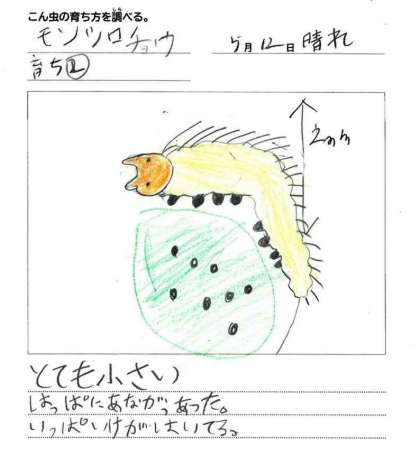 こん虫の育ち方を調べる。
モンシロチョウ
5月12日 晴れ
育ち②
2mm
とても小さい
はっぱにあながっあった。
いっぱいけがはいてる。